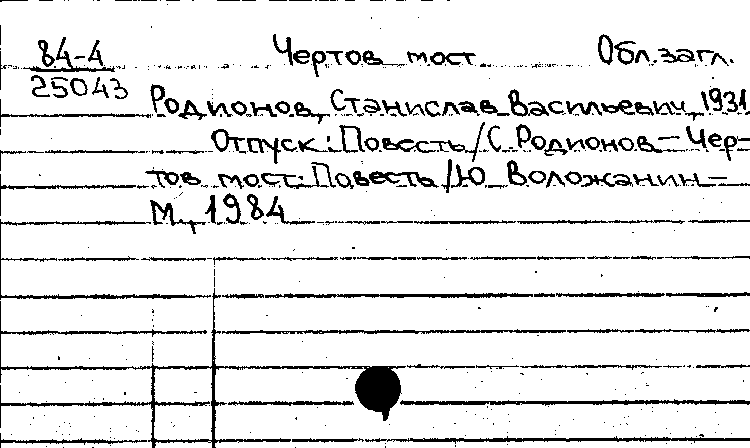 84-4 Чертов мост Обл.загл.
25043
Родионов, Станислав Васильевич, 1931
Отпуск: Повесть/С Родионов — Чер-
тов мост: Повесть/Ю Воложанин —
М., 1984